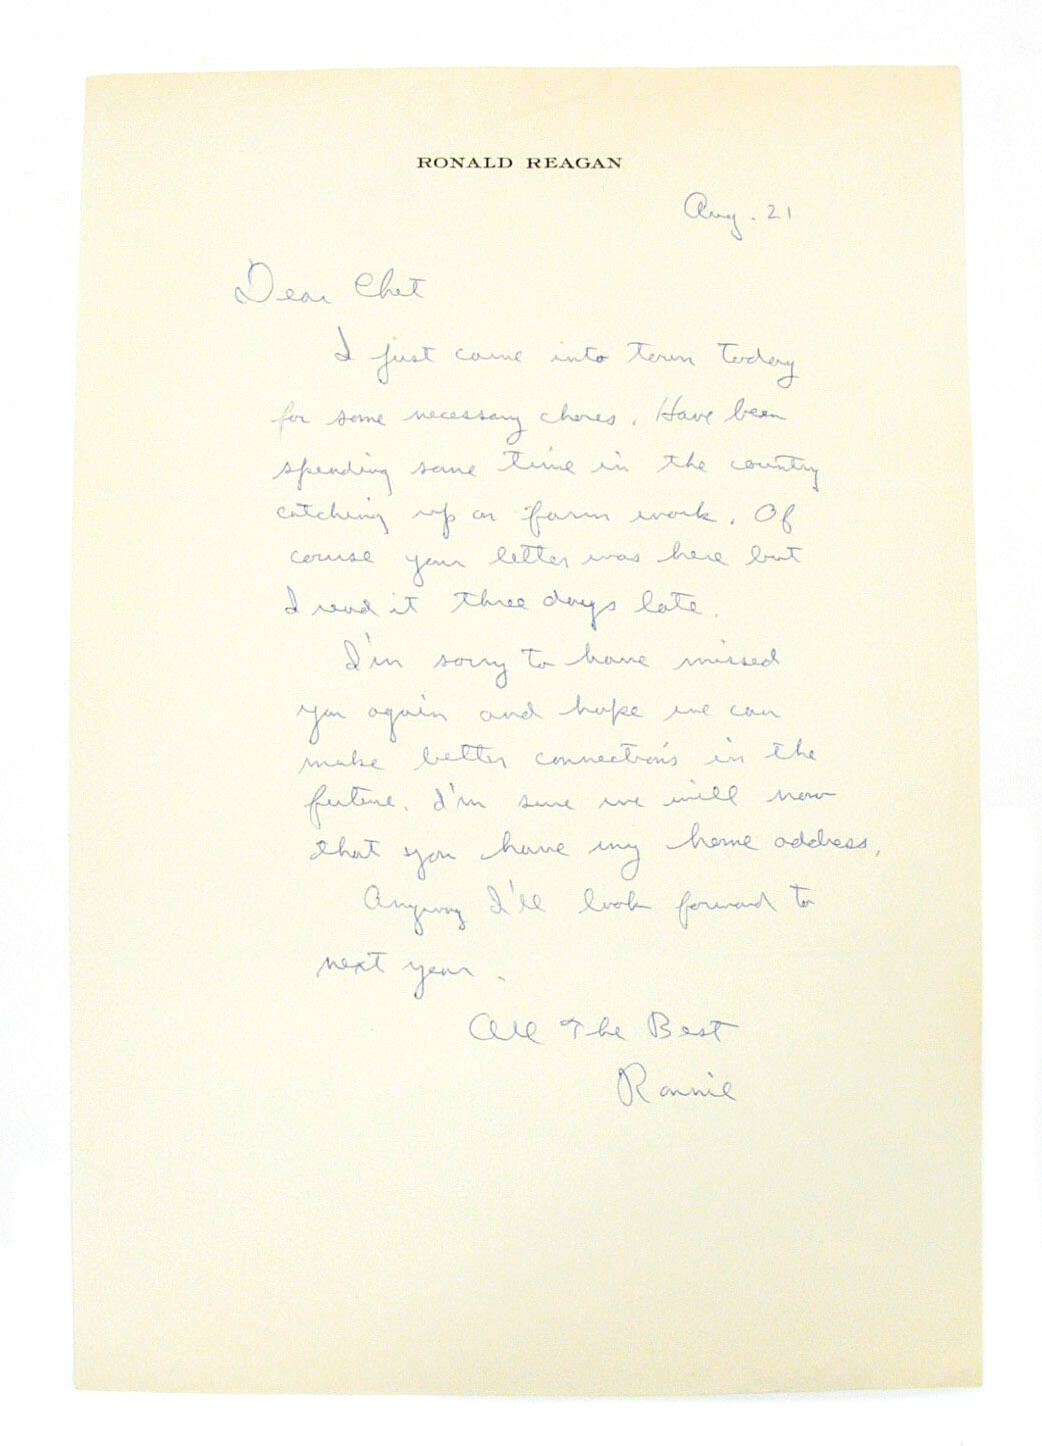 RONALD REAGAN
Aug. 21
Dear Chet
I just came into town today
for some necessary chores. Have been
spending some time in the country
catching up on farm work. Of
course your letter was here but
I read it three days late.
I'm sorry to have missed
you again and hope we can
make better connections in the
future. I'm sure we will now
that you have my home address.
Anyway I'll look forward to
next year.
All The Best
Ronnie